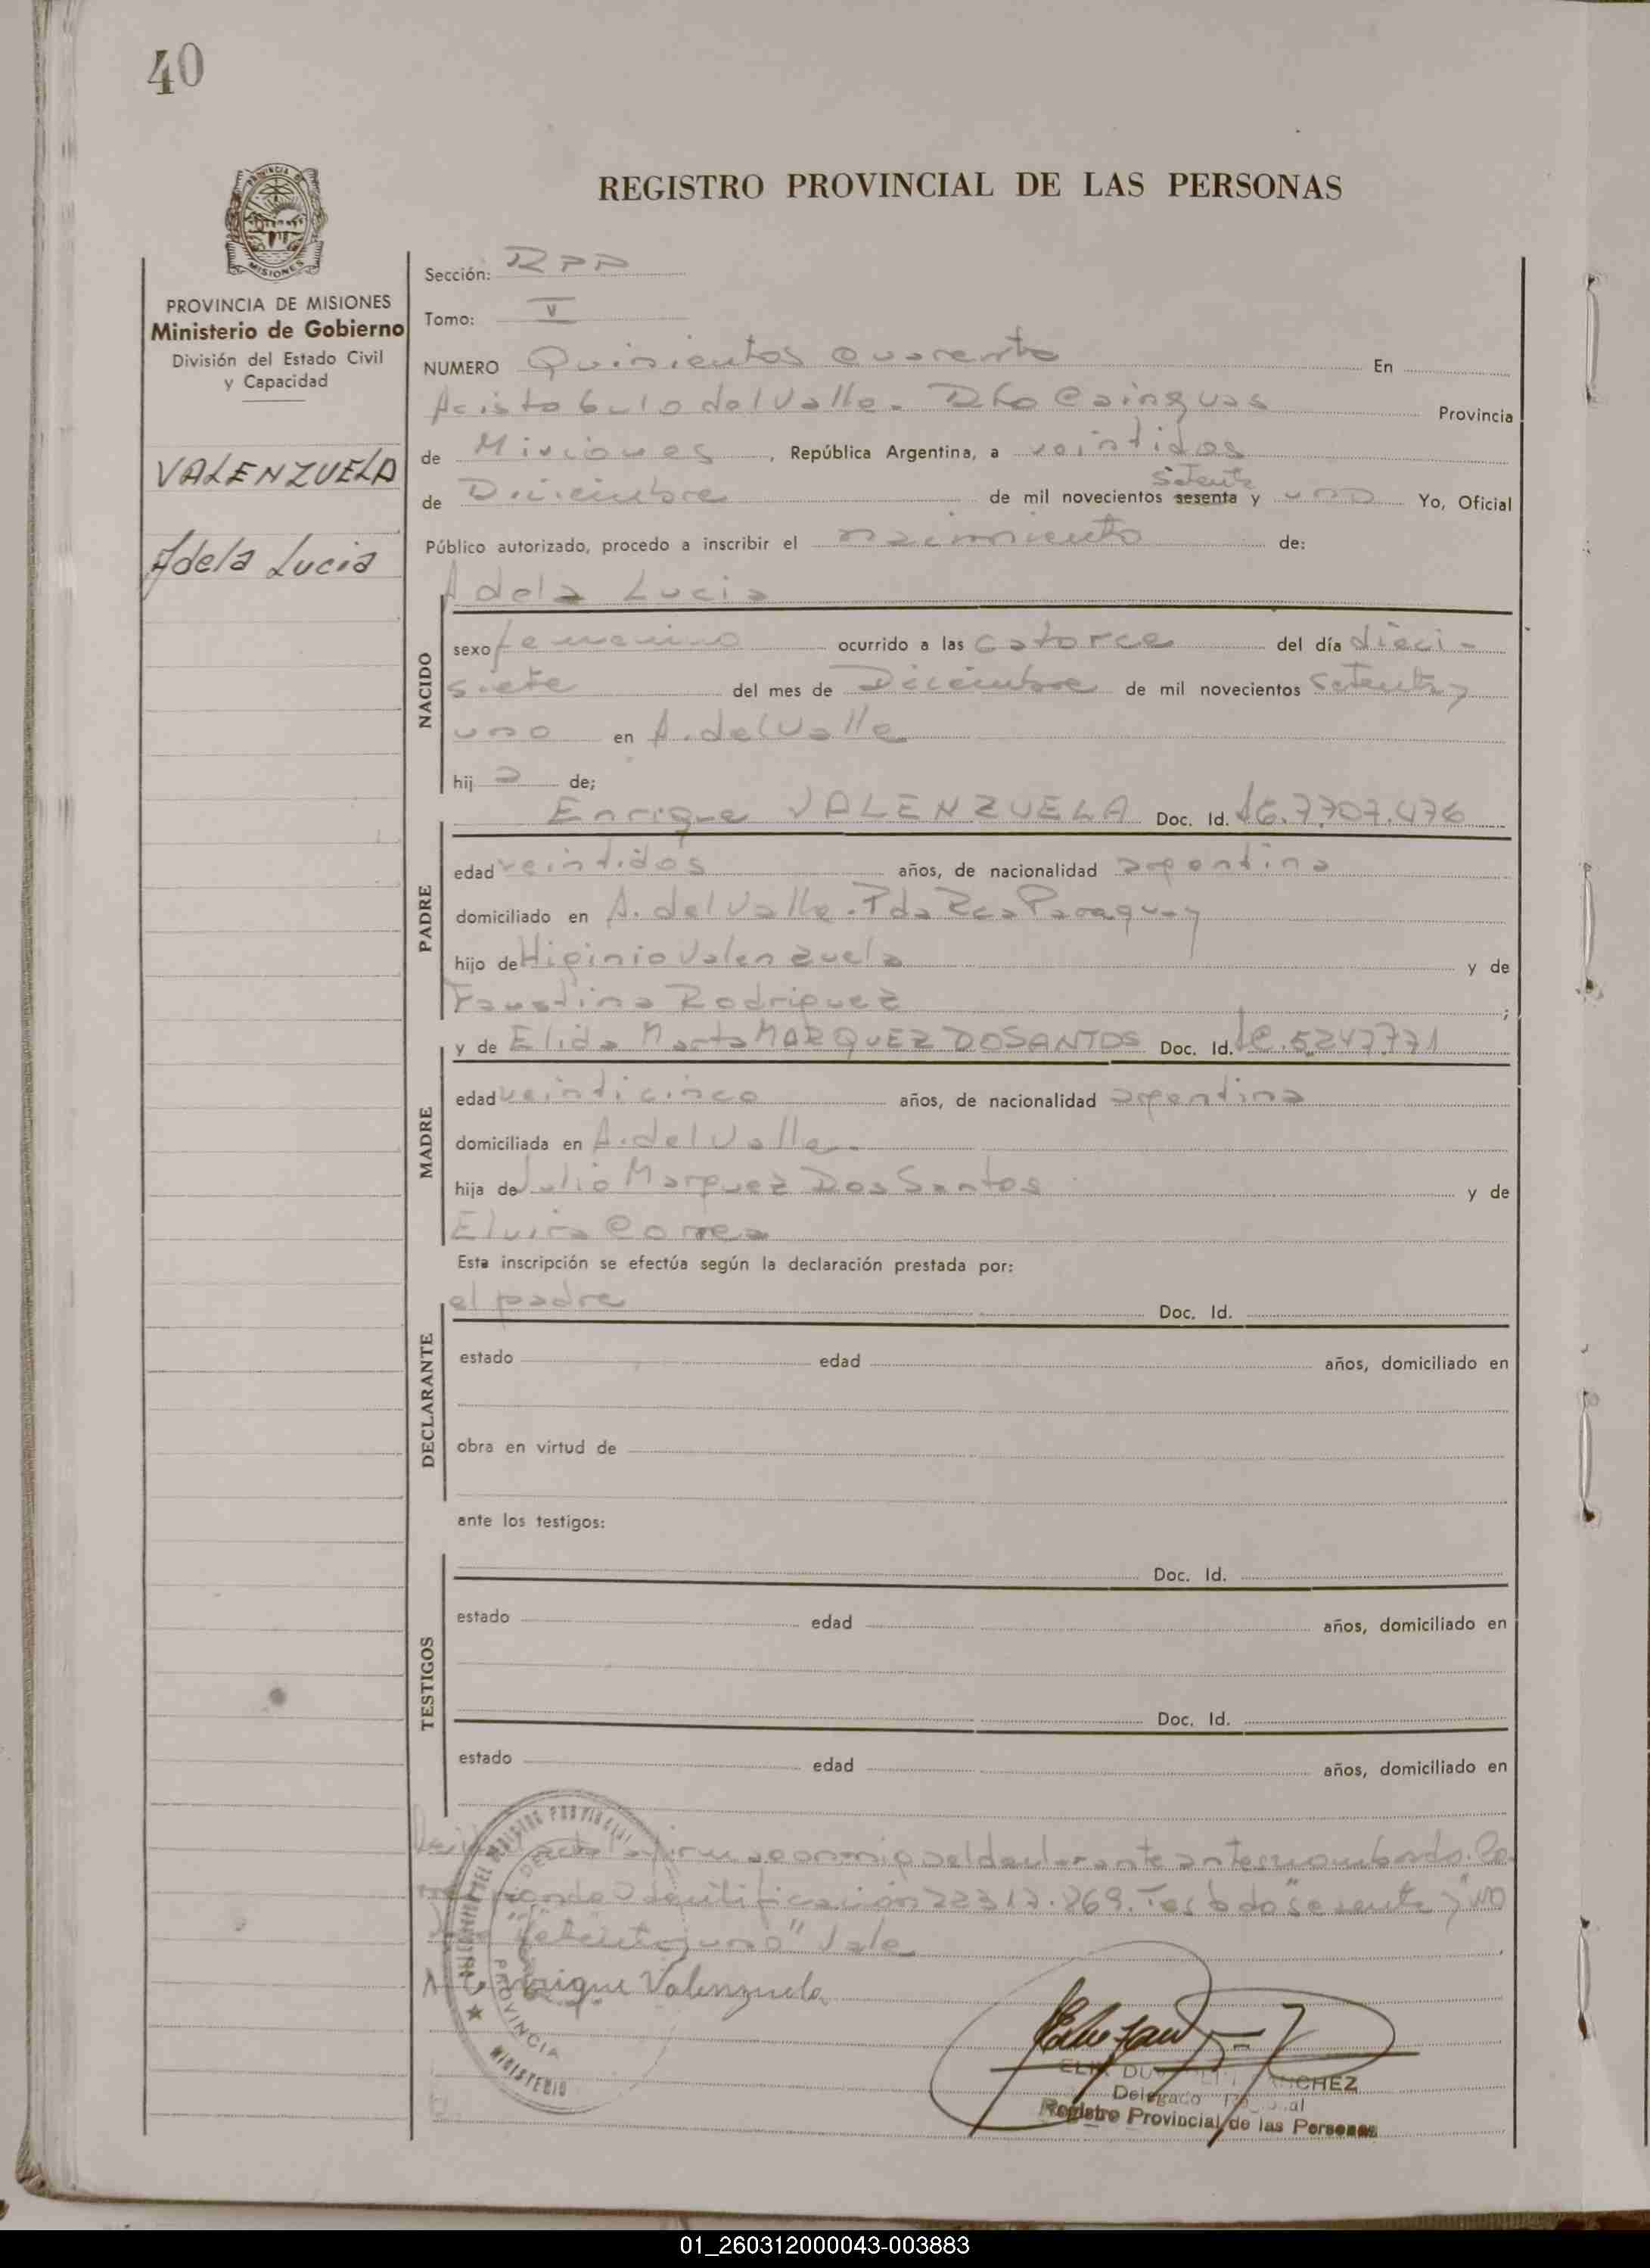 40
PROVINCIA DE
MISIONES
REGISTRO PROVINCIAL DE LAS PERSONAS
PROVINCIA DE MISIONES
Ministerio de Gobierno
División del Estado Civil
y Capacidad
VALENZUELA
Adela Lucia
Sección: RPP
Tomo: V
NUMERO Quinientos Cuarenta En
Aristobulo del Valle. Dto Cainguas Provincia
de Misiones, República Argentina, a veintidos
setenta
de Diciembre de mil novecientos sesenta y uno Yo, Oficial
Público autorizado, procedo a inscribir el nacimiento de:
Adela Lucia
NACIDO
sexo femenino ocurrido a las catorce del día dieci-
siete del mes de Diciembre de mil novecientos setenta y
uno en A. del Valle
hij a de;
Enrique VALENZUELA Doc. Id. 7.707.476
PADRE
edad veintidos años, de nacionalidad argentina
domiciliado en A. del Valle. Pda Rca Paraguay
hijo de Higinio Valenzuela y de
Faustina Rodriguez ;
y de Elida Marta MARQUEZ DOSANTOS Doc. Id. LC. 5.247.771
MADRE
edad veinticinco años, de nacionalidad argentina
domiciliada en A. del Valle.
hija de Julio Marquez Dos Santos y de
Elvira Correa
Esta inscripción se efectúa según la declaración prestada por:
el padre Doc. Id.
DECLARANTE
estado edad años, domiciliado en
obra en virtud de
ante los testigos:
TESTIGOS
Doc. Id.
estado edad años, domiciliado en
Doc. Id.
estado edad años, domiciliado en
acta firma conmigo el declarante antes nombrado.
Identificación 22317.869. Testado "sesenta y uno
"setenta y uno" Vale
Enrique Valenzuela
PROVINCIA
MINISTERIO
Delegado
Registro Provincial de las Personas
01_260312000043-003883